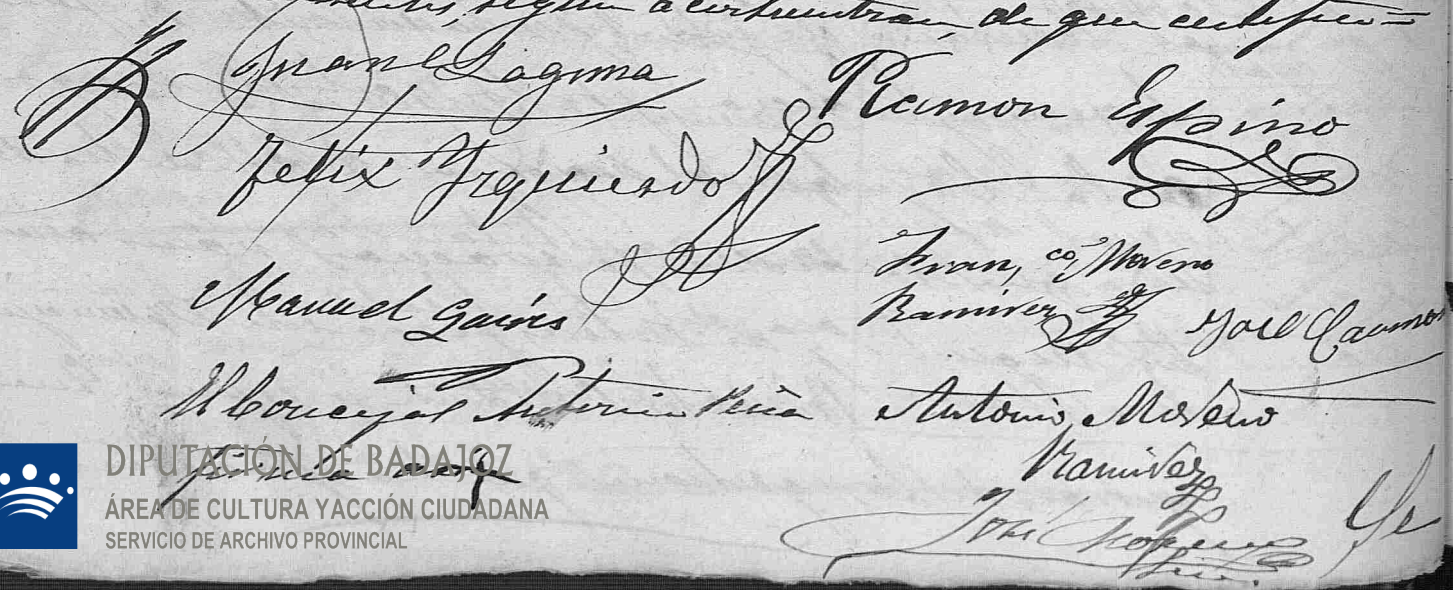 según acostumbran de que certifico =
Juan L Laguna
Ramon Espino
Felix Yzquierdo
Fran,co Moreno
Manuel
Ramirez
José
El Concejal Antonio Peña
Antonio Moreno
firma con +
Ramirez
José
DIPUTACIÓN DE BADAJOZ
ÁREA DE CULTURA Y ACCIÓN CIUDADANA
SERVICIO DE ARCHIVO PROVINCIAL